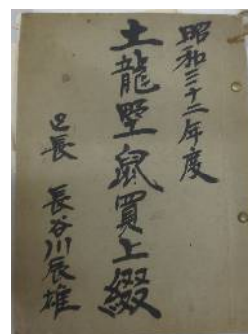 昭和三十二年度
土龍野鼠買上綴
区長 長谷川辰雄